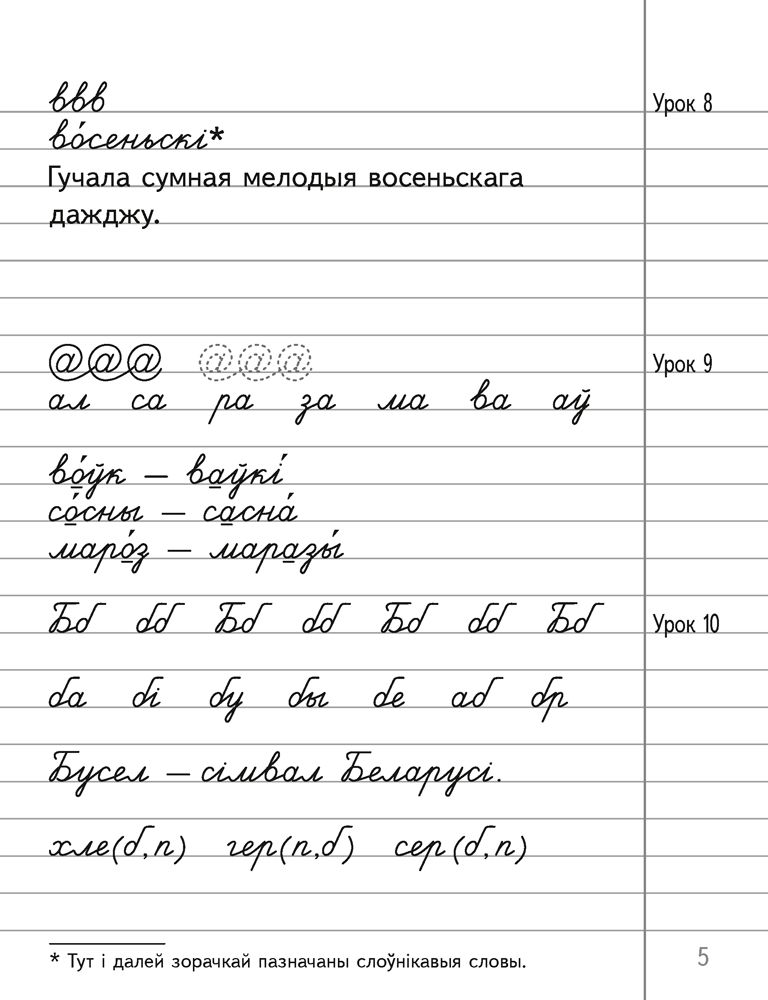 ввв
Урок 8
во́сеньскі*
Гучала сумная мелодыя восеньскага
дажджу.
@@@ @@@
Урок 9
ал са ра за ма ва аў
во́ўк — ваўкі́
со́сны — сасна́
маро́з — маразы́
Бб бб Бб бб Бб бб Бб
Урок 10
ба бі бу бы бе аб бр
Бусел — сімвал Беларусі.
хле(б,п) гер(п,б) сер(б,п)
* Тут і далей зорачкай пазначаны слоўнікавыя словы.
5